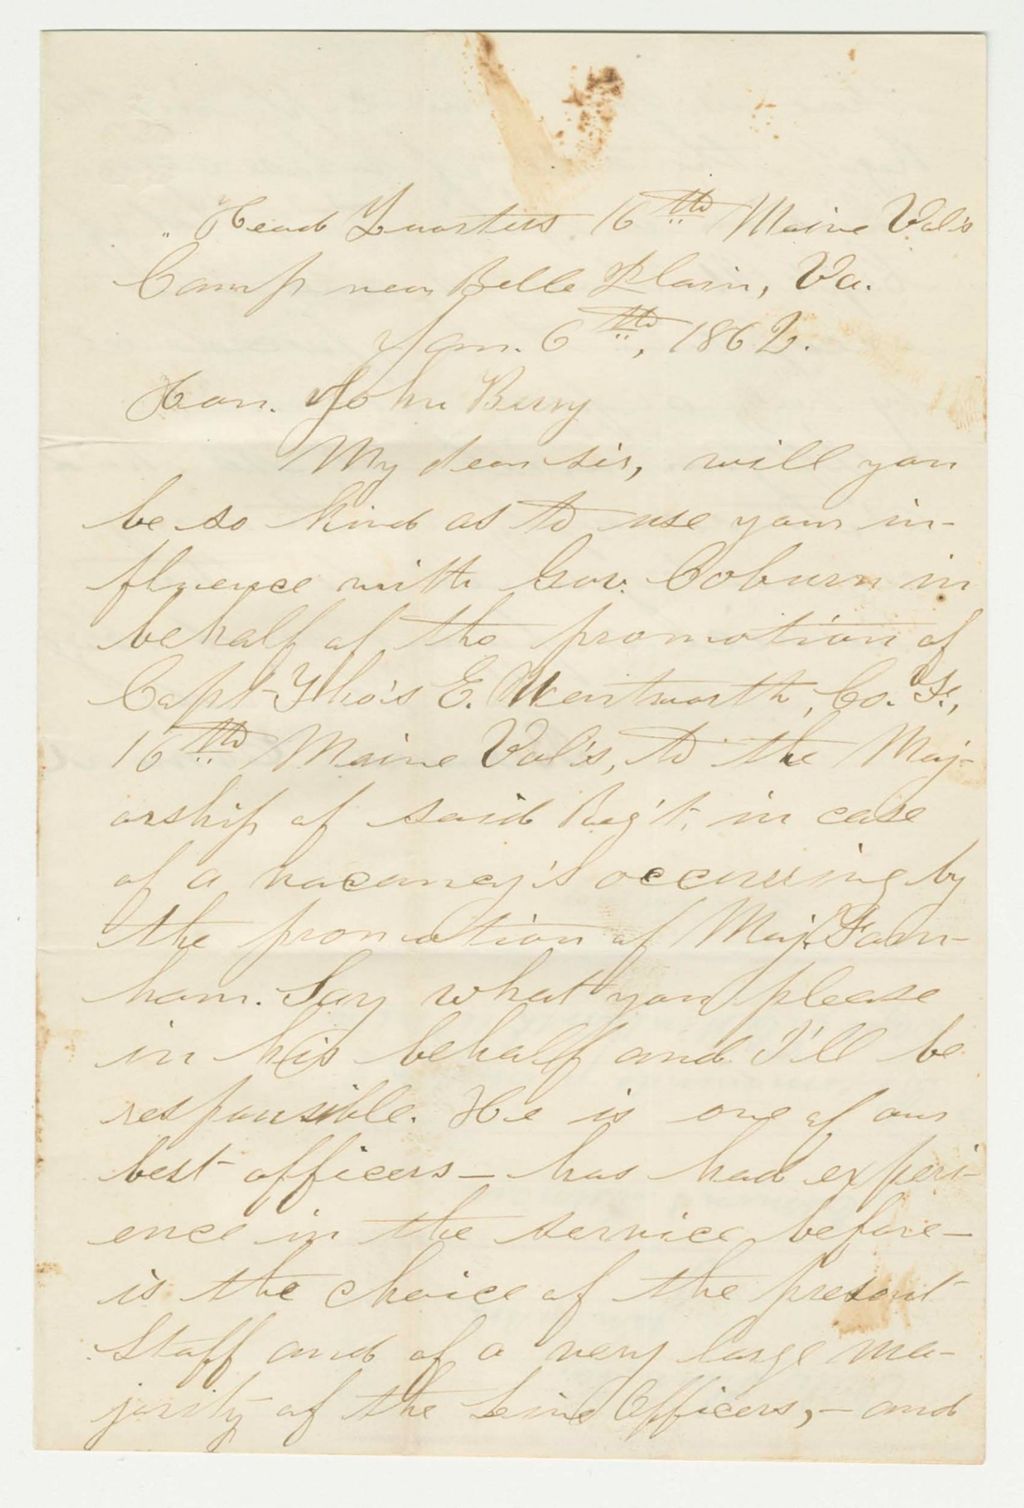 Head Quarters 16th Maine Vol's
Camp near Belle Plain, Va.
Jan. 6th, 1862.
Hon. John Berry
My dear sir, will you
be so kind as to use your in-
fluence with Gov. Coburn in
behalf of the promotion of
Capt Tho's E. Wentworth, Co. F.,
16th Maine Vol's, to the Maj-
orship of said Reg't. in case
of a vacancy's occurring by
the promotion of Maj. Farn-
ham. Say what you please
in his behalf and I'll be
responsible. He is one of our
best officers — has had experi-
ence in the service before —
is the choice of the present
Staff and of a very large ma-
jority of the Line Officers, — and